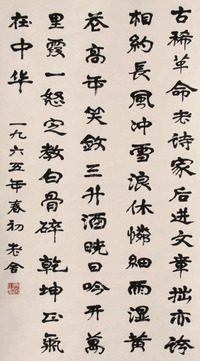 古稀革命老诗家后进文章拙亦誇
相約長風冲雪浪休憐細雨湿黄
花高年笑飲三升酒晓日吟开萬
里霞一怒定教白骨碎乾坤正氣
在中华 一九六五年春初 老舍